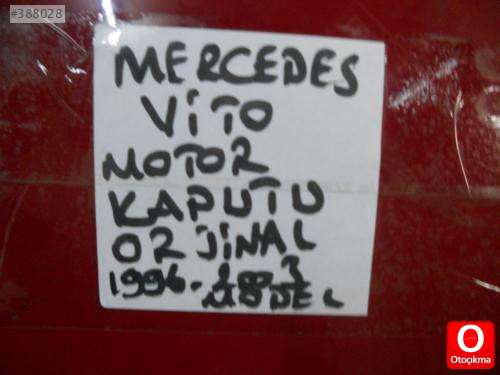 #388028
MERCEDES
ViTO
MOTOR
KAPUTU
ORJiNAL
1996-2003
MODEL
O
Otoçıkma